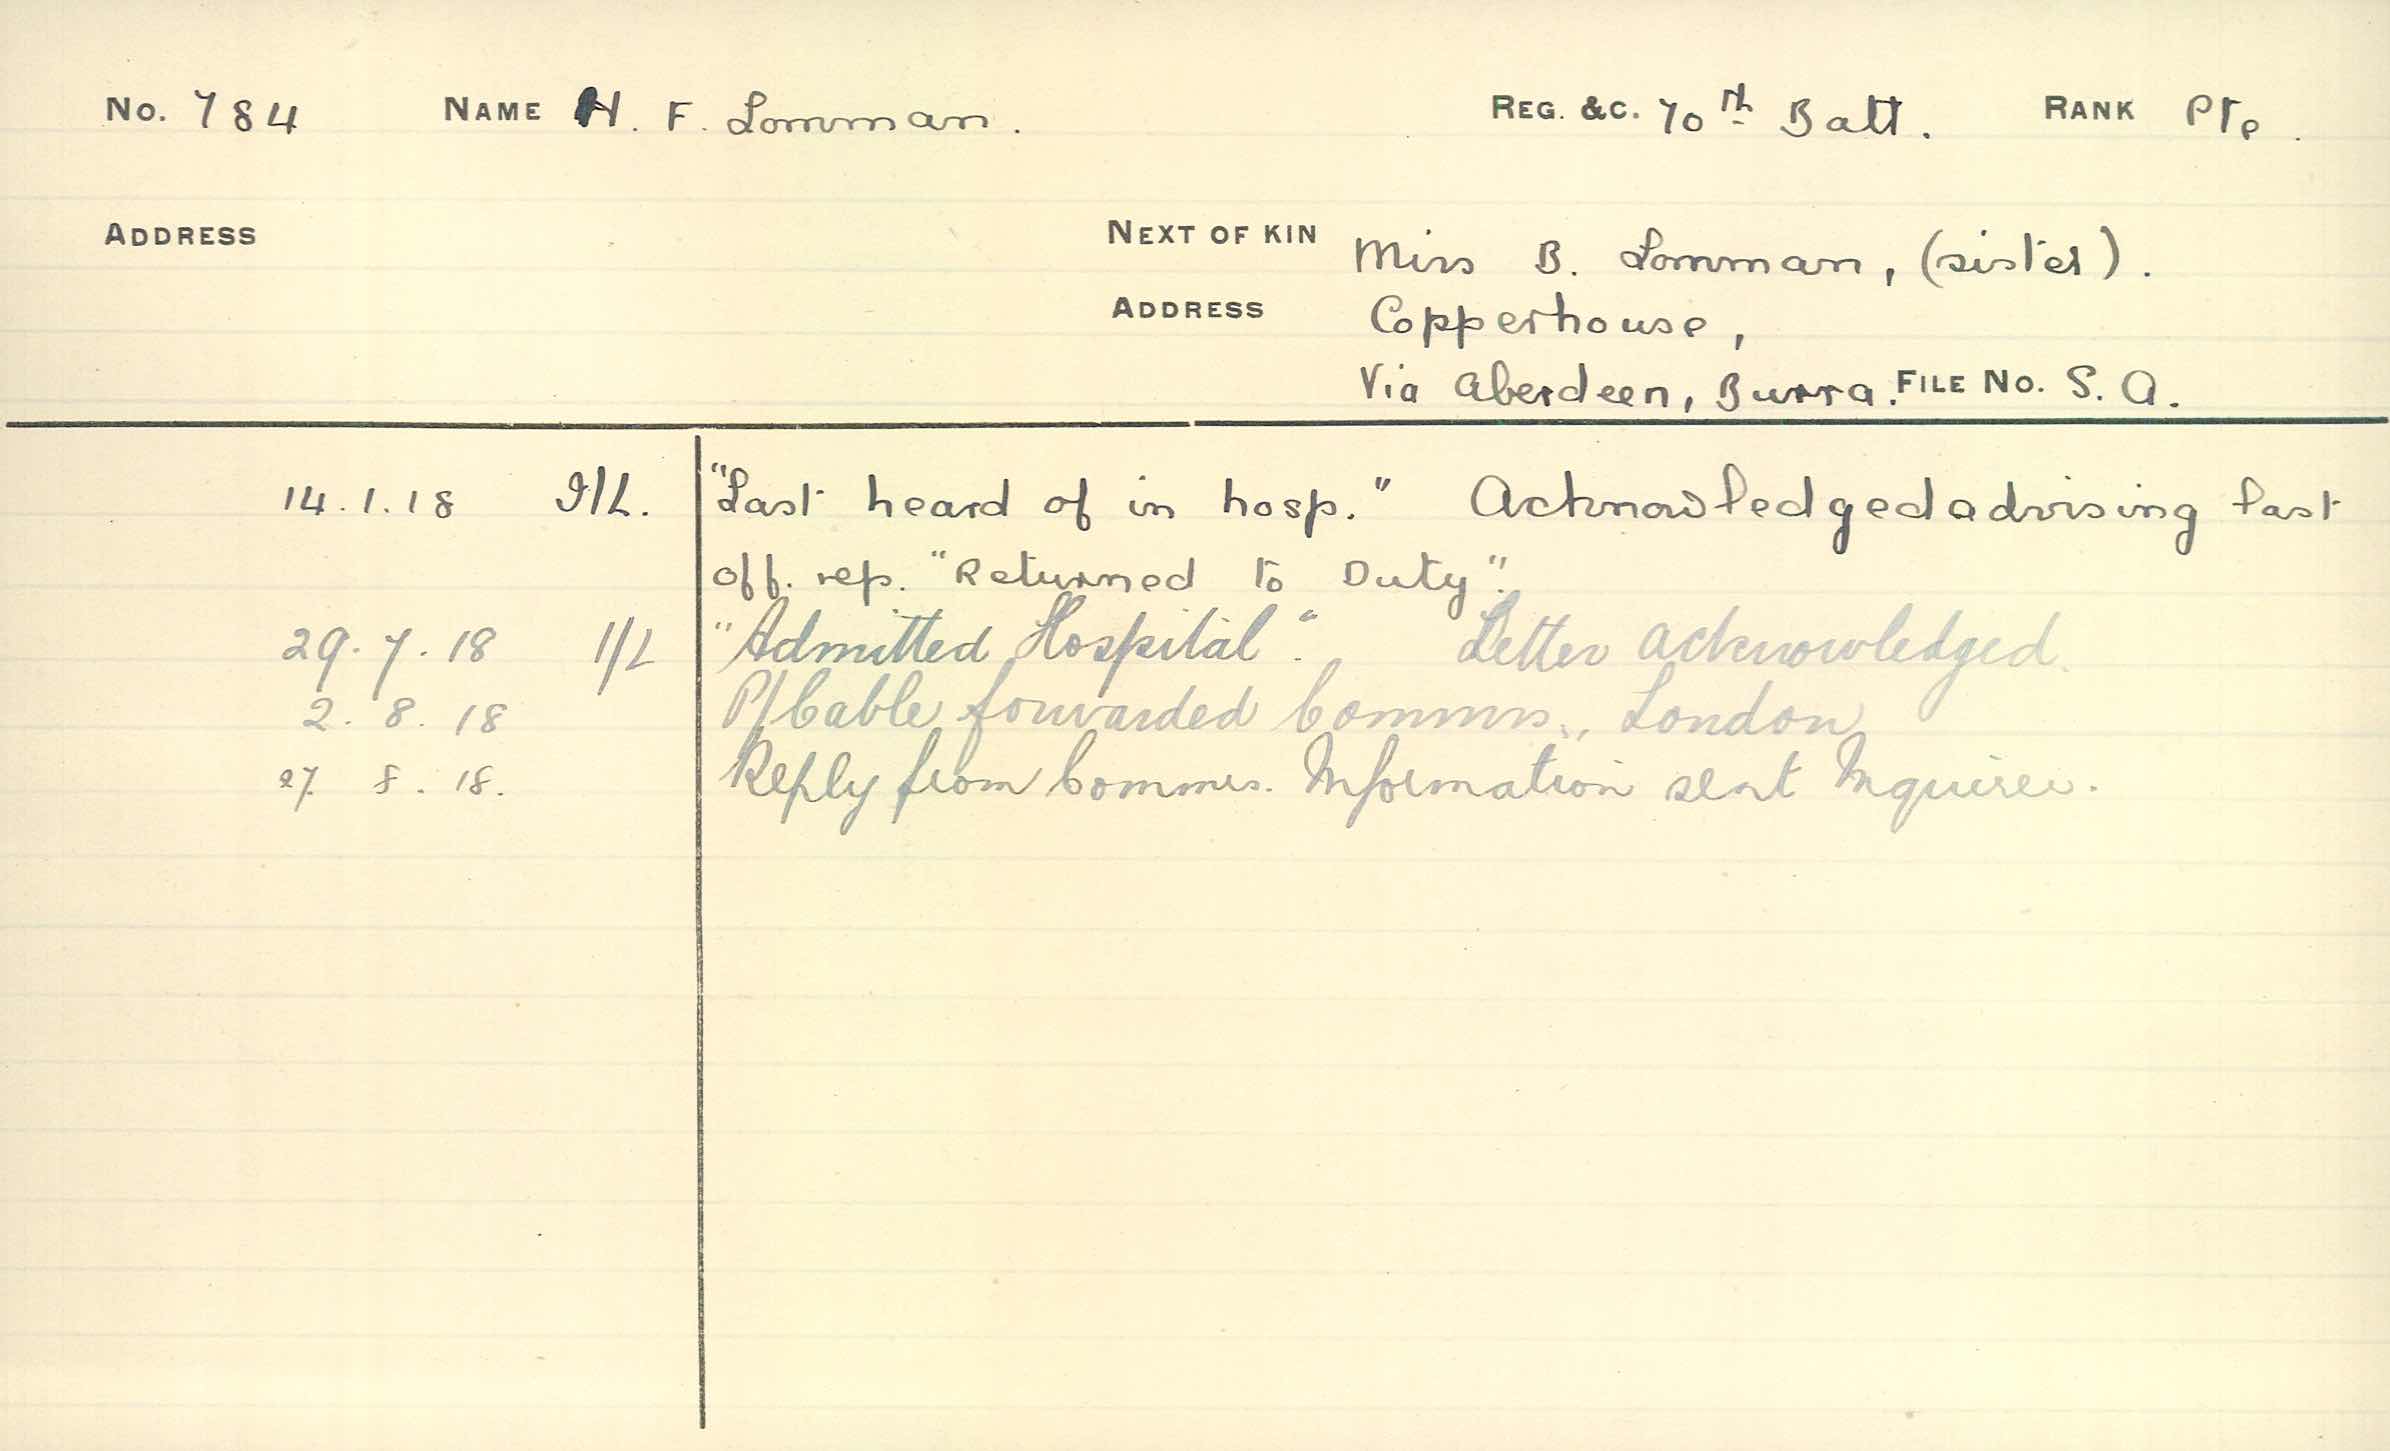 No. 784 NAME H. F. Lomman. REG. &C. 70th Batt. RANK Pte.
ADDRESS NEXT OF KIN Miss B. Lomman, (sister).
ADDRESS Copperhouse,
Via Aberdeen, Burra. FILE No. S. A.
14.1.18 I/L. "Last heard of in hosp." Acknowledged advising last
off. rep. "Returned to Duty".
29.7.18 I/L "Admitted Hospital". Letter acknowledged.
2.8.18 P/Cable forwarded Commrs., London
27 8.18. Reply from Commrs. Information sent Inquirer.